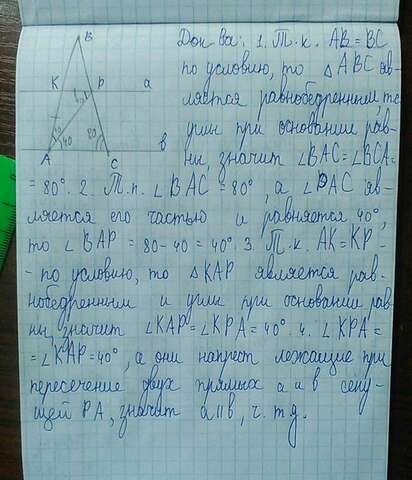 B
K P a
40
40 80
A C в
Док-ва: 1. Т.к. AB = BC
по условию, то △ABC яв-
ляется равнобедренным, т.е.
углы при основании рав-
ны, значит ∠BAC = ∠BCA =
= 80°. 2. Т.к. ∠BAC = 80°, а ∠PAC яв-
ляется его частью и равняется 40°,
то ∠BAP = 80 - 40 = 40°. 3. Т.к. AK = KP -
- по условию, то △KAP является рав-
нобедренным и углы при основании рав-
ны, значит ∠KAP = ∠KPA = 40°. 4. ∠KPA =
= ∠KAP = 40°, а они напрест лежащие при
пересечение двух прямых a и в секу-
щей PA, значит a||в, ч.т.д.